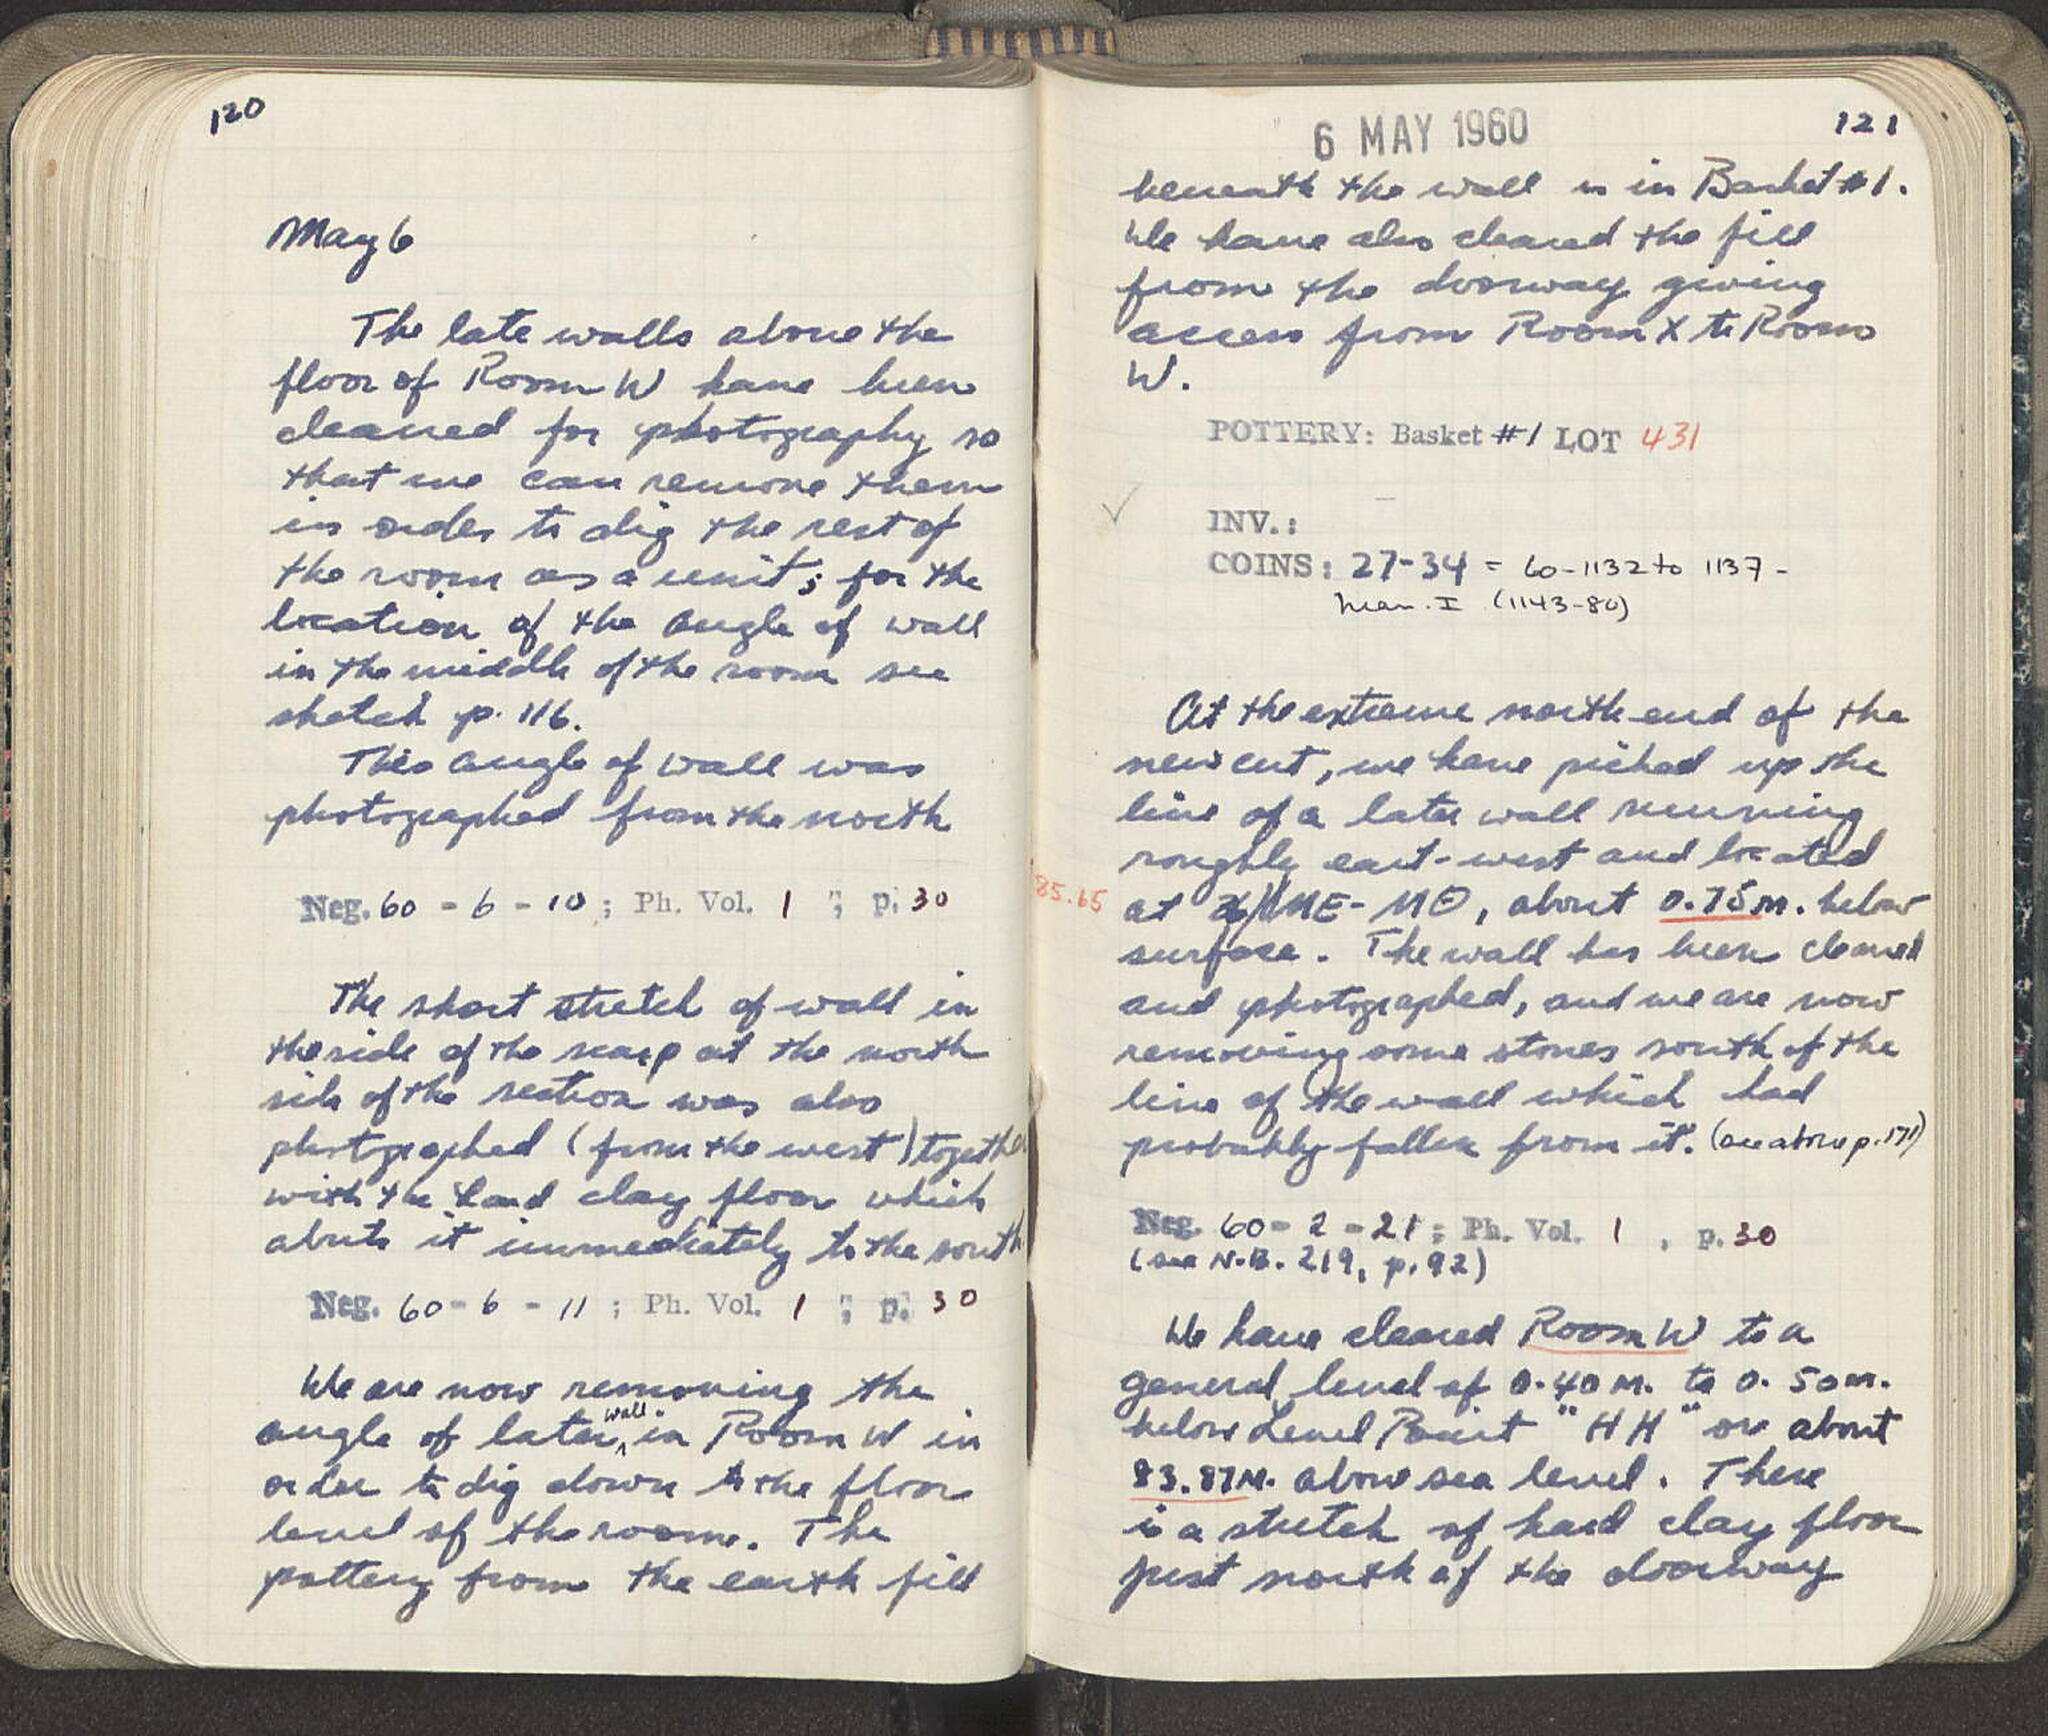 120
May 6
The late walls above the
floor of Room W have been
cleaned for photography so
that we can remove them
in order to dig the rest of
the room as a unit; for the
location of the angle of wall
in the middle of the room see
sketch p. 116.
This angle of wall was
photographed from the north
Neg. 60 - 6 - 10 ; Ph. Vol. 1 ; p. 30
The short stretch of wall in
the side of the scarp at the north
side of the section was also
photographed (from the west) together
with the hard clay floor which
abuts it immediately to the south.
Neg. 60 - 6 - 11 ; Ph. Vol. 1 ; p. 30
We are now removing the
angle of later wall in Room W in
order to dig down to the floor
level of the room. The
pottery from the earth fill
6 MAY 1960
121
beneath the wall is in Basket #1.
We have also cleared the fill
from the doorway giving
access from Room X to Room
W.
POTTERY: Basket #1 LOT 431
✓
INV.: –
COINS: 27-34 = 60-1132 to 1137 -
Nean. I (1143-80)
At the extreme north end of the
new cut, we have picked up the
line of a later wall running
roughly east-west and located
85.65
at /ΝΕ-ΝΘ, about 0.75 m. below
surface. The wall has been cleaned
and photographed, and we are now
removing some stones south of the
line of the wall which had
probably fallen from it. (see above p. 171)
Neg. 60 - 2 - 21 ; Ph. Vol. 1 , p. 30
(see N.B. 219, p. 92)
We have cleared Room W to a
general level of 0.40 m. to 0.50 m.
below Level Point "HH" or about
83.87 M. above sea level. There
is a stretch of hard clay floor
just north of the doorway